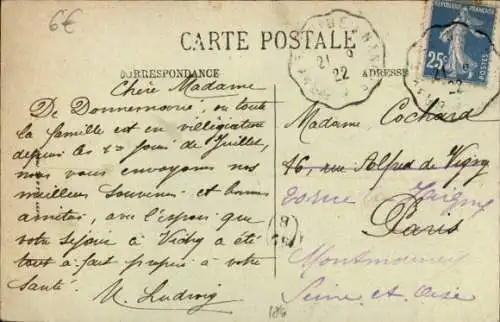 6€
CARTE POSTALE
CORRESPONDANCE
ADRESSE
RÉPUBLIQUE FRANÇAISE
25c
21 9
22
Chère Madame
De Donnemarie, où toute
la famille est en villégiation
depuis les 20 jours de Juillet,
nous vous envoyons nos
meilleurs souvenirs et bonnes
amitiés, avec l'espoir que
votre séjour à Vichy a été
tout à fait propice à votre
santé.
M. Ludwig
Madame Cochard
16, rue Alfred de Vigny
Paris
Montmorency
Seine et Oise
186